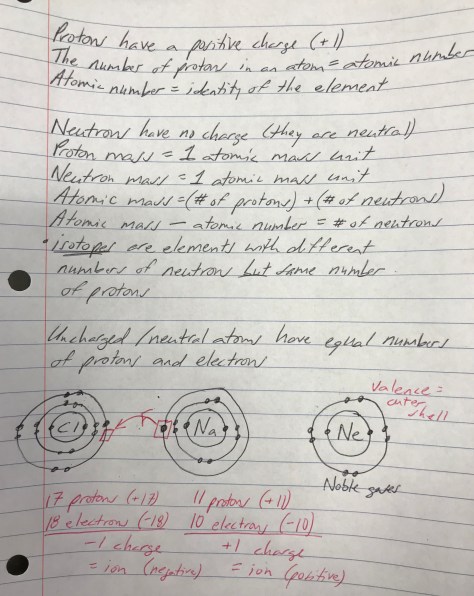 Protons have a positive charge (+1)
The number of protons in an atom = atomic number
Atomic number = identity of the element
Neutrons have no charge (they are neutral)
Proton mass = 1 atomic mass unit
Neutron mass = 1 atomic mass unit
Atomic mass = (# of protons) + (# of neutrons)
Atomic mass - atomic number = # of neutrons
• isotopes are elements with different
numbers of neutrons but same number
of protons
Uncharged/neutral atoms have equal numbers
of protons and electrons
Valence =
outer
shell
Cl
Na
Ne
Noble gases
17 protons (+17) 11 protons (+11)
18 electrons (-18) 10 electrons (-10)
-1 charge +1 charge
= ion (negative) = ion (positive)